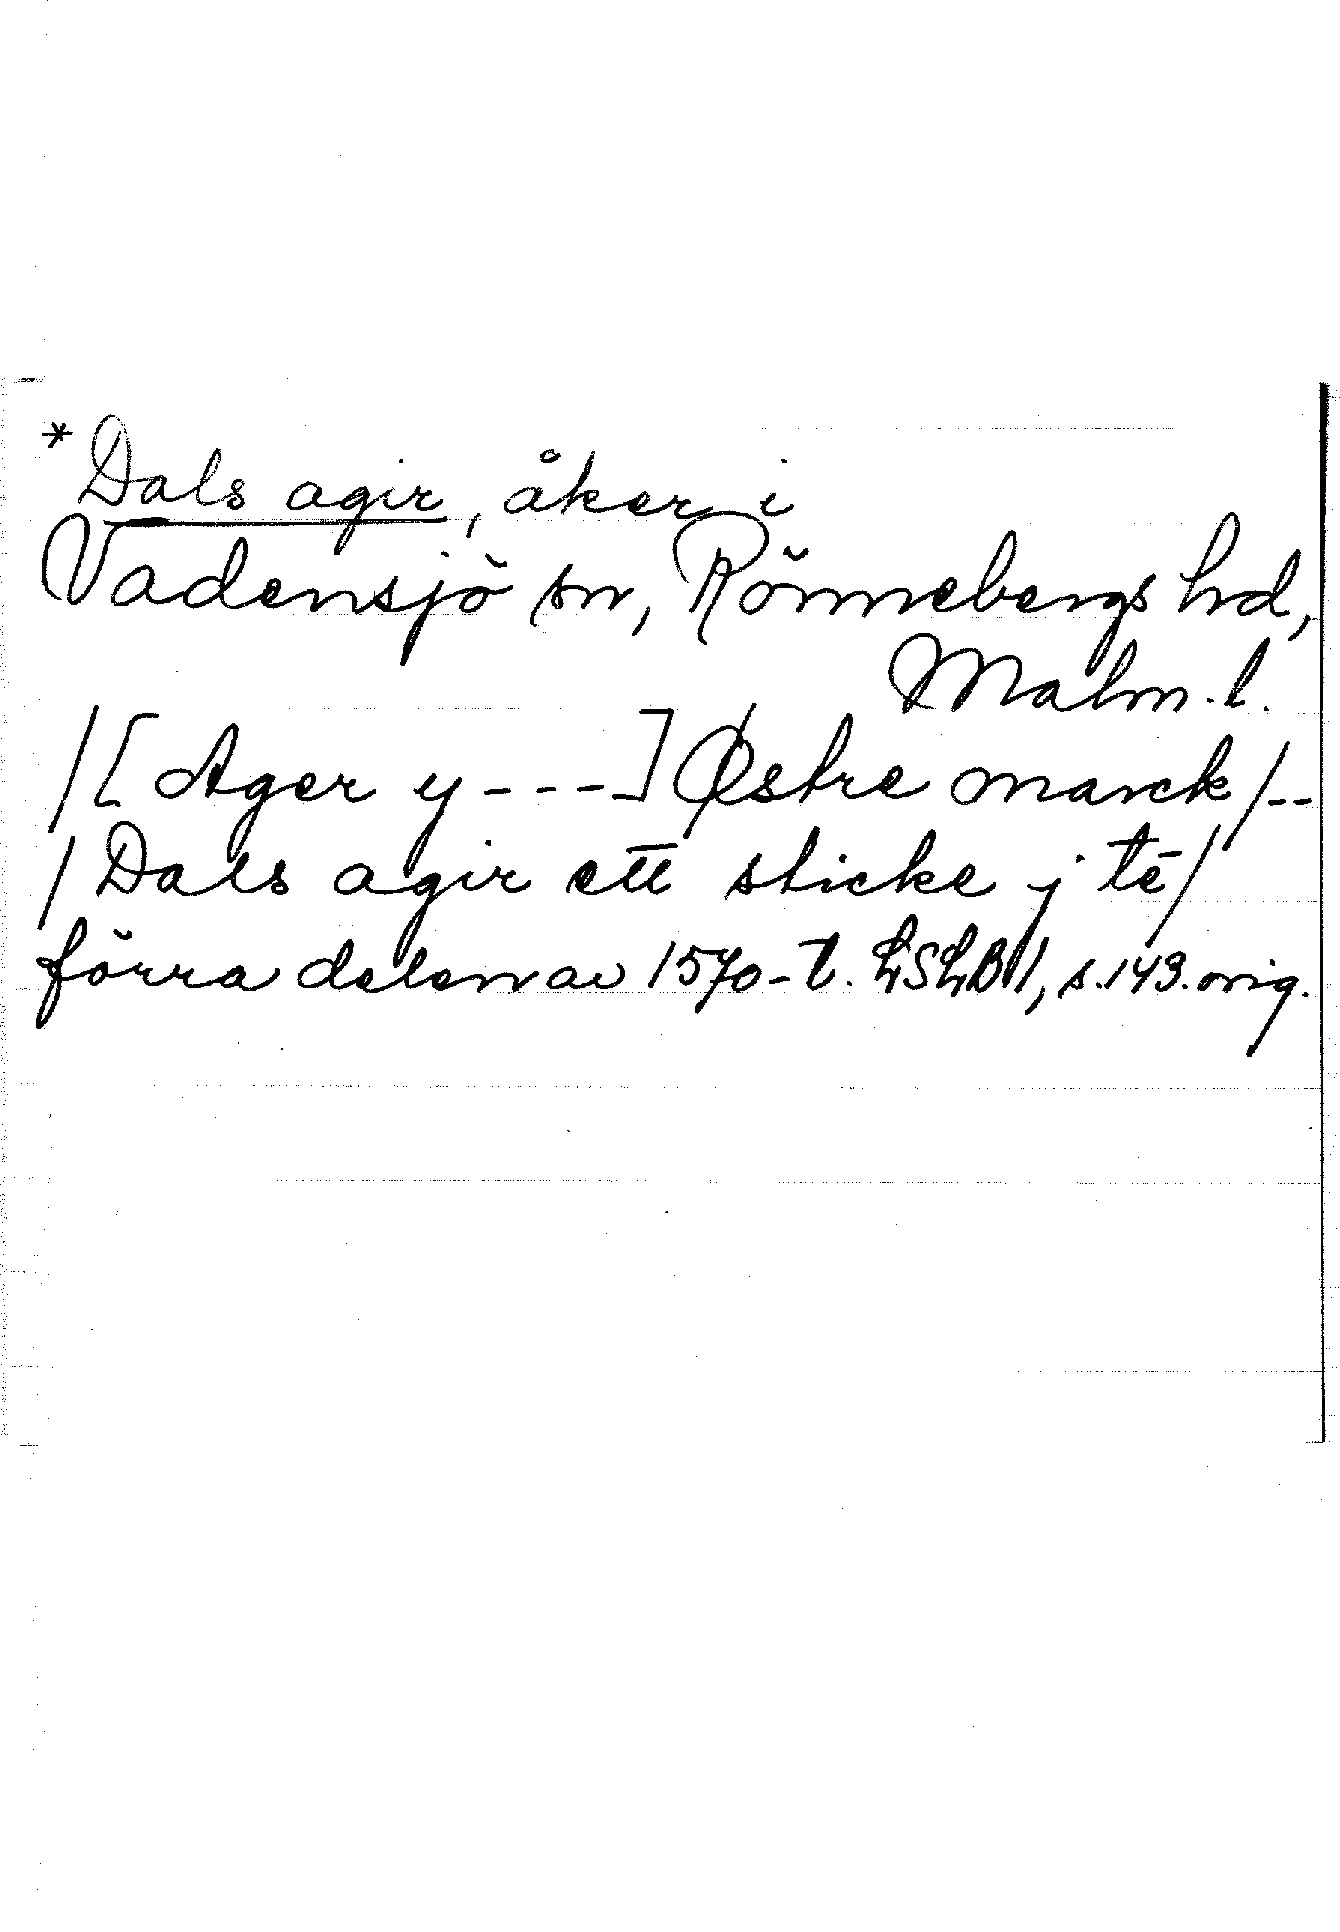 *Dals agir, åker i
Vadensjö sn, Rönnebergs hrd,
Malm. l.
/[Ager y---] Østre marck/--
/Dals agir ett sticke j tē/
förra delen av 1570-t. LSLB 1, s. 143. orig.